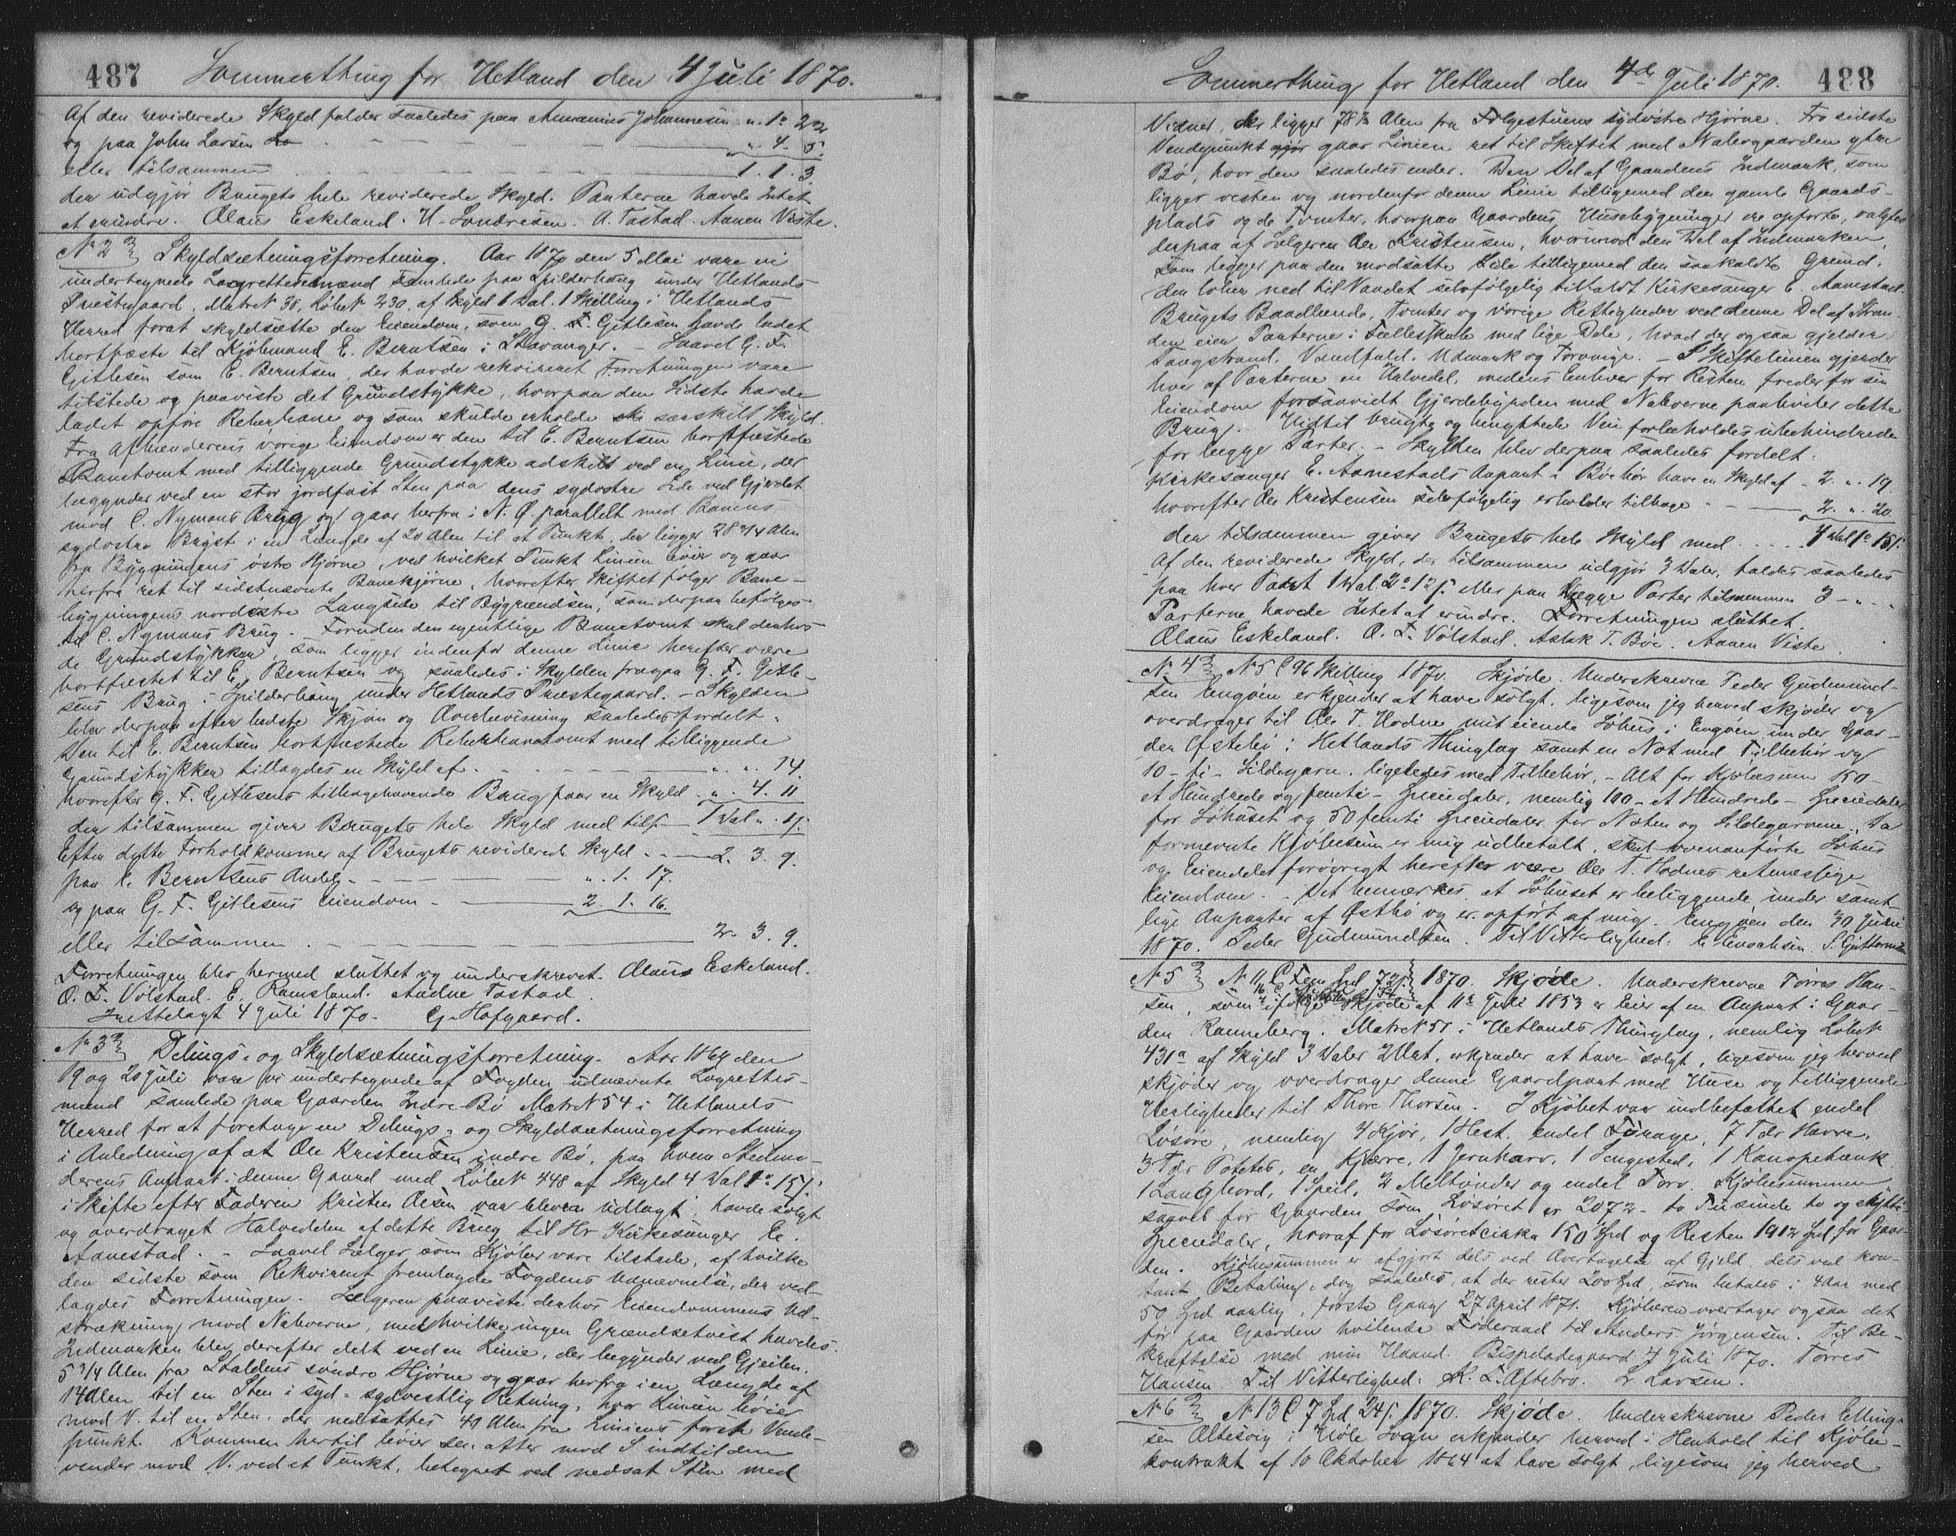 487 Sommerthing for Hetland den 4 Juli 1870.
Af den reviderede Skyld falder saaledes paa Ananias Johannesen " 1. 22
og paa John Larsen " 4. 5.
eller tilsammen 1. 1. 3
der udgjør Brugets hele reviderede Skyld. Parterne havde Intet
at erindre. Olaus Eskeland. H. Sondresen. A. Tastad. Aanen Viste.
No 2 Skyldsætningsforretning. Aar 1870 den 5 Mai vare vi
undertegnede Laugrettesmænd samlede paa Spilderhaug under Hetlands
Præstegaard, Matr No 38, Løbe No 230, af Skyld 1 Dal. 1 Skilling i Hetlands
Herred forat skyldsætte den Eiendom, som G. F. Gitlesen havde ladet
bortfæste til Kjøbmand E. Berntsen i Stavanger. – Saavel G. F.
Gitlesen som E. Berntsen, der havde rekvireret Forretningen vare
tilstede og paaviste det Grundstykke, hvorpaa den Sidste havde
ladet opføre Reberbane og som skulde erholde særskilt Skyld.
Fra Afhænderens øvrige Eiendom er den til E. Berntsen bortfæstede
Banetomt med tilliggende Grundstykke adskilt ved en Linie, der
begynder ved en stor jordfast Sten paa dens sydostre Side ved Gjerdet
mod C. Nymans Brug og gaar herfra i N. Ø. parallelt med Banens
sydostre Bryst i en Længde af 20 Alen til et Punkt, der ligger 28 3/4 Alen
fra Bygningens østre Hjørne, ved hvilket Punkt Linien bøier og gaar
herfra ret til sidstnævnte Banehjørne, hvorefter Skiftet følger Bane-
bygningens nordøstre Langside til Bygrændsen, som derpaa befølges
til C. Nymans Brug. – Foruden den egentlige Banetomt skal den hos
de Grundstykker, som ligger indenfor denne Linie herefter være
bortfæstet til E. Berntsen og saaledes i Skylden fragaa G. F. Gitle-
sens Brug – Spilderhaug under Hetlands Præstegaard. – Skylden
blev derpaa efter bedste Skjøn og Overbevisning saaledes fordelt.
Den til E. Berntsen bortfæstede Reberbanetomt med tilliggende
Grundstykker tillagdes en Skyld af " " 14.
hvorefter G. F. Gitlesens tilbagehavende Brug faar en Skyld " 4. 11
der tilsammen giver Brugets hele Skyld med 1 Dal " 1.
Efter dette Forhold kommer af Brugets reviderede Skyld 2. 3. 9.
paa E. Berntsens Andel " 1. 17.
og paa G. F. Gitlesens Eiendom 2. 1. 16.
eller tilsammen 2. 3. 9.
Forretningen blev hermed sluttet og underskrevet. Olaus Eskeland.
O. T. Vølstad. E. Ramsland. Audne Tastad.
Inetelagt 4 Juli 1870. G. Hofgaard.
No 3 Delings- og Skyldsætningsforretning. Aar 1869 den
19 og 20 Juli vare vi undertegnede af Fogden udnævnte Laugrettes-
mænd samlede paa Gaarden Indre Bø Matr No 54 i Hetlands
Herred for at foretage en Delings- og Skyldsætningsforretning
i Anledning af at Ole Kristensen indre Bø, paa hvem Stedmo-
derens Anpart i denne Gaard med Løbe No 448 af Skyld 4 Dal 1 15 s.
i Skifte efter Faderen Kristen Olsen var bleven udlagt, havde solgt
og overdraget Halvedelen af dette Brug til Hr Kirkesanger E.
Aanestad. – Saavel Sælger som Kjøber vare tilstede, af hvilke
den sidste som Rekvirent fremlagde Fogdens Udnævnelse, der ved-
lagdes Forretningen. Sælgeren paaviste derhos Eiendommens Ud-
strækning mod Naboerne, med hvilke ingen Grændsetvist havdes.
Indmarken blev derefter delt ved en Linie, der begynder ved Gjeilen,
5 3/4 Alen fra Staldens søndre Hjørne og gaar herfra i en Længde af
14 Alen til en Sten i syd-sydvestlig Retning, hvor Linien bøier
mod V. til en Sten, der nedsattes 40 Alen fra Liniens først Vende-
punkt. Kommen hertil bøier den atter mod S. indtil den
vender mod V. ved et Punkt, betegnet ved nedsat Sten med
Sommerthing for Hetland den 4de Juli 1870. 488
Vidner, der ligger 78 1/2 Alen fra Følgestuens sydvestre Hjørne. Fra sidste
Vendepunkt gaar Linien ret til Skiftet med Nabogaarden ytre
Bø, hvor den saaledes ender. Den Del af Gaardens Indmark, som
ligger vesten og nordenfor denne Linie tilligemed den gamle Gaards-
plads og de Tomter, hvorpaa Gaardens Husebygninger ere opførte, valgtes
derpaa af Sælgeren Ole Kristensen, hvorimod den Del af Indmarken,
som ligger paa den modsatte Side tilligemed den saakaldte Grund,
den løber ned til Vandet selvfølgelig tilfaldt Kirkesanger E. Aanestad.
Brugets Baadlænde, Tomter og øvrige Rettigheder ved denne Del af Stran-
den eier Parterne i Fællesskab med lige Dele, hvad der ogsaa gjelder
Tangstrand, Vandfald, Udmark og Torvrige. – I Skiftelinien gjerder
hver af Parterne en Halvedel, medens Enhver for Resten freder for sin
Eiendom forsaavidt Gjerdebyrden med Naboerne paahviler dette
Brug. Hidtil brugte og benyttede Veie forbeholdes ubehindrede
for begge Parter. – Skylden blev derpaa saaledes fordelt.
Kirkesanger E. Aanestads Anpart i Bø bør have en Skyld af 2. " 19.
hvorefter Ole Kristensen selvfølgelig erholder tilbage 2. " 20
der tilsammen giver Brugets hele Skyld med 4 Dal 1 15 s.
Af den reviderede Skyld, der tilsammen udgjør 3 Daler, faldes saaledes
paa hver Part 1 Dal 2 12 s. eller paa begge Parter tilsammen 3 " "
Parterne havde Intet at erindre. Forretningen sluttet.
Olaus Eskeland. O. T. Vølstad. Aslak T. Bø. Aanen Viste.
No 4 No 5 C 96 Skilling 1870. Skjøde. Underskrevne Peder Gudmund-
sen Engøen erkjender at have solgt, ligesom jeg herved skjøder og
overdrager til Ole T. Hodne mit eiende Søhus i Engøen under Gaar-
den Østebø i Hetlands Thinglag samt en Not med Tilbehør og
10 – ti – Sildegarn, ligeledes med Tilbehør, – Alt for Kjøbesum 150 –
et Hundrede og femti – Speciedaler, nemlig 100 – et Hundrede – Speciedaler
for Søhuset og 50 femti Speciedaler for Noten og Sildegarnene. Da
formeldte Kjøbesum er mig udbetalt, skal ovenanførte Søhus
og Eiendele forøvrigt herefter være Ole T. Hodnes retmæssige
Eiendom. – Det bemærkes at Søhuset er beliggende under samt-
lige Anparter af Østbø og er opført af mig. Engøen den 30 Juni
1870. Peder Gudmundsen. Til Vitterlighed: E. Enochsen. S. Guttormsen
No 5 No 11 C Fem Spd 72 s. 1870. Skjøde. Underskrevne Tørres Han-
sen, som ifølge Skjøde af 11te Juli 1853 er Eier af en Anpart i Gaar-
den Ranneberg, Matr No 51 i Hetlands Thinglag, nemlig Løbe No
431a af Skyld 3 Daler 2 Ort, erkjender at have solgt, ligesom jeg herved
skjøder og overdrager denne Gaardpart med Huse og tilliggende
Herligheder til Thore Thorsen. I Kjøbet var indbefattet endel
Løsøre, nemlig 4 Kjør, 1 Hest, endel Forage, 7 Tdr Havre,
3 Tdr Potetes, en Kjærre, 1 Jernharv, 1 Sengested, 1 Kanapebænk
1 Langbord, 1 Speil, 2 Meltønder og endel Torv. Kjøbesummen
saavel for Gaarden som Løsøret er 2072 – to Tusinde to og sytti –
Speciedaler, hvoraf for Løsøret cirka 150 Spd og Resten 1912 Spd for Gaar-
den. Kjøbesummen er afgjort dels ved Overtagelse af Gjeld, dels ved kon-
tant Betaling, dog saaledes, at der rester 200 Spd, som betales i 4 Aar med
50 Spd aarlig, første Gang 27 April 1871. Kjøberen overtager ogsaa det
før paa Gaarden hvilende Føderaad til Anders Jørgensen. Til Be-
kræftelse med min Haand. Bispeladegaard 4 Juli 1870. Tørres
Hansen. Til Vitterlighed: K. L. Aftebro. L. Larsen.
No 6 No 13 C 7 Spd 24 s. 1870. Skjøde. Underskrevne Peder Elling-
sen Altesvig i Høle Sogn erkjender herved i Henhold til Kjøbe-
kontrakt af 10 Oktober 1864 at have solgt, ligesom jeg herved